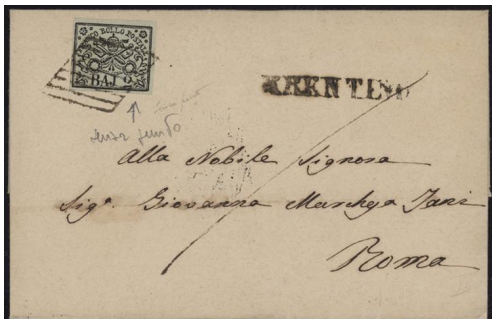 FRANCO BOLLO POSTALE
BAJ 2
senza punto
Alla Nobile Signora
Sigª. Giovanna Marchesa
Roma